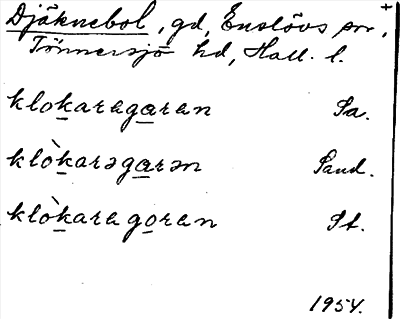 Djäknebol, gd, Enslövs sn, +
Tönnersjö hd, Hall. l.
klokaragaran Sa.
klòkarəgarən Sand.
klòkaragoran St.
1954.